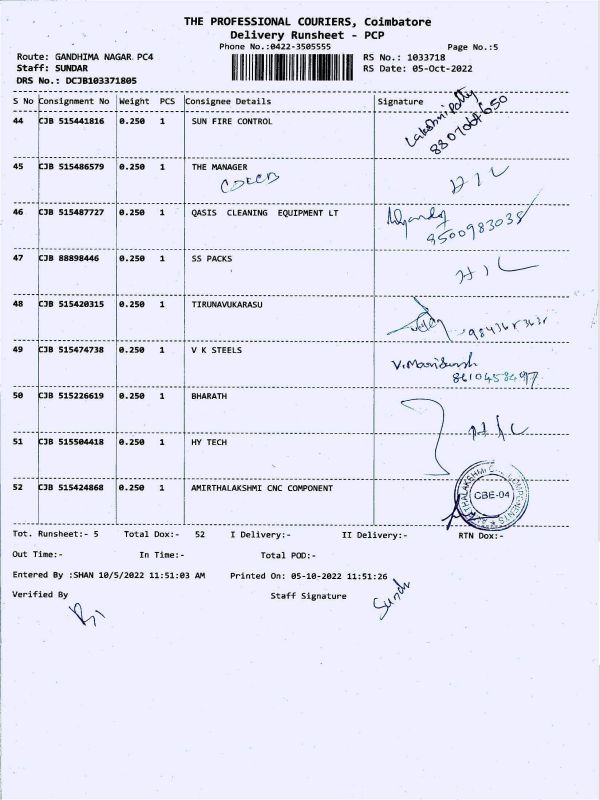 THE PROFESSIONAL COURIERS, Coimbatore
Delivery Runsheet - PCP
Phone No.:0422-3505555
Page No.:5
Route: GANDHIMA NAGAR PC4
RS No.: 1033718
Staff: SUNDAR
RS Date: 05-Oct-2022
DRS No.: DCJB103371805
S No Consignment No Weight PCS Consignee Details Signature
44 CJB 515441816 0.250 1 SUN FIRE CONTROL
45 CJB 515486579 0.250 1 THE MANAGER
46 CJB 515487727 0.250 1 QASIS CLEANING EQUIPMENT LT
9500983038
47 CJB 88898446 0.250 1 SS PACKS
48 CJB 515420315 0.250 1 TIRUNAVUKARASU
49 CJB 515474738 0.250 1 V K STEELS
8610458497
50 CJB 515226619 0.250 1 BHARATH
51 CJB 515504418 0.250 1 HY TECH
52 CJB 515424868 0.250 1 AMIRTHALAKSHMI CNC COMPONENT
CBE-04
Tot. Runsheet:- 5 Total Dox:- 52 I Delivery:- II Delivery:- RTN Dox:-
Out Time:- In Time:- Total POD:-
Entered By :SHAN 10/5/2022 11:51:03 AM Printed On: 05-10-2022 11:51:26
Verified By Staff Signature